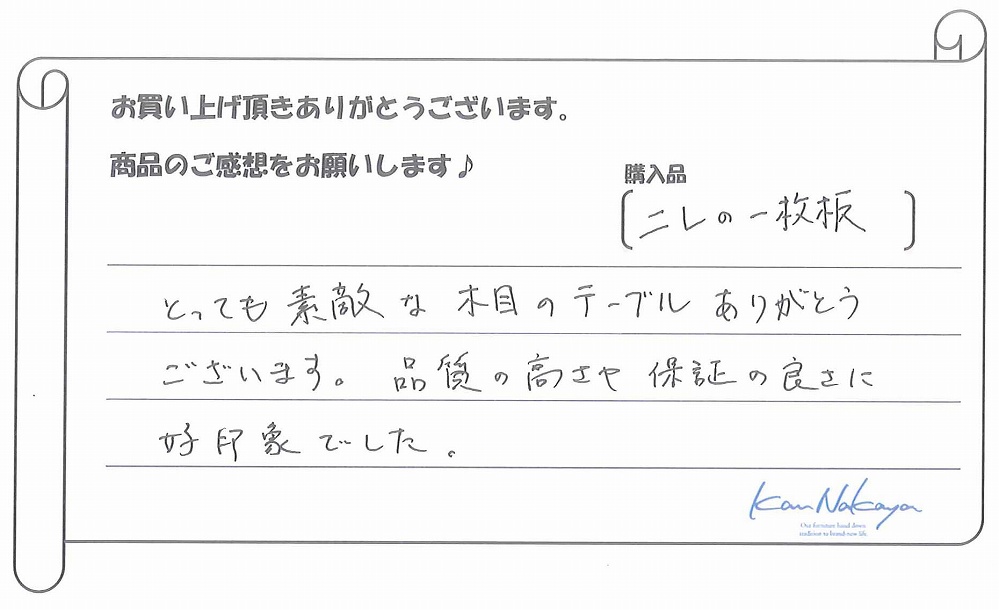 お買い上げ頂きありがとうございます。
商品のご感想をお願いします♪
購入品
〔ニレの一枚板〕
とっても素敵な木目のテーブルありがとう
ございます。品質の高さや保証の良さに
好印象でした。
Kan Nakaya
Our furniture hand down
tradition to brand-new life.